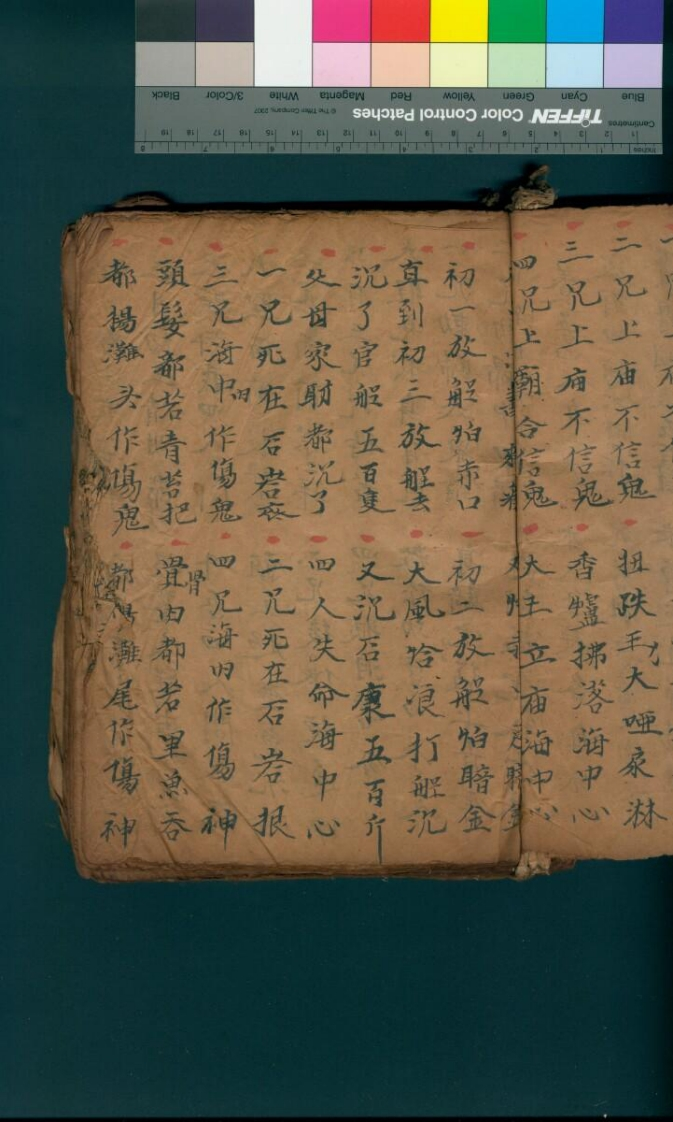 二兄上庙不信鬼 扭跌王大哑家淋
三兄上庙不信鬼 香爐拂落海中心
四兄上廟合信鬼 大王立庙海中心
初一放船怕赤口 初二放船怕暗金
直到初三放船去 大風吹浪打船沉
沉了官船五百隻 又沉石康五百斤
父母家財都沉了 四人失命海中心
一兄死在石岩底 二兄死在石岩根
三兄海中作傷鬼 四兄海内作傷神
頭髮都若青苔把 骨肉都若里魚吞
都楊灘头作傷鬼 都楊灘尾作傷神
TIFFEN Color Control Patches
© The Tiffen Company, 2007
Centimetres
Inches
Blue Cyan Green Yellow Red Magenta White 3/Color Black